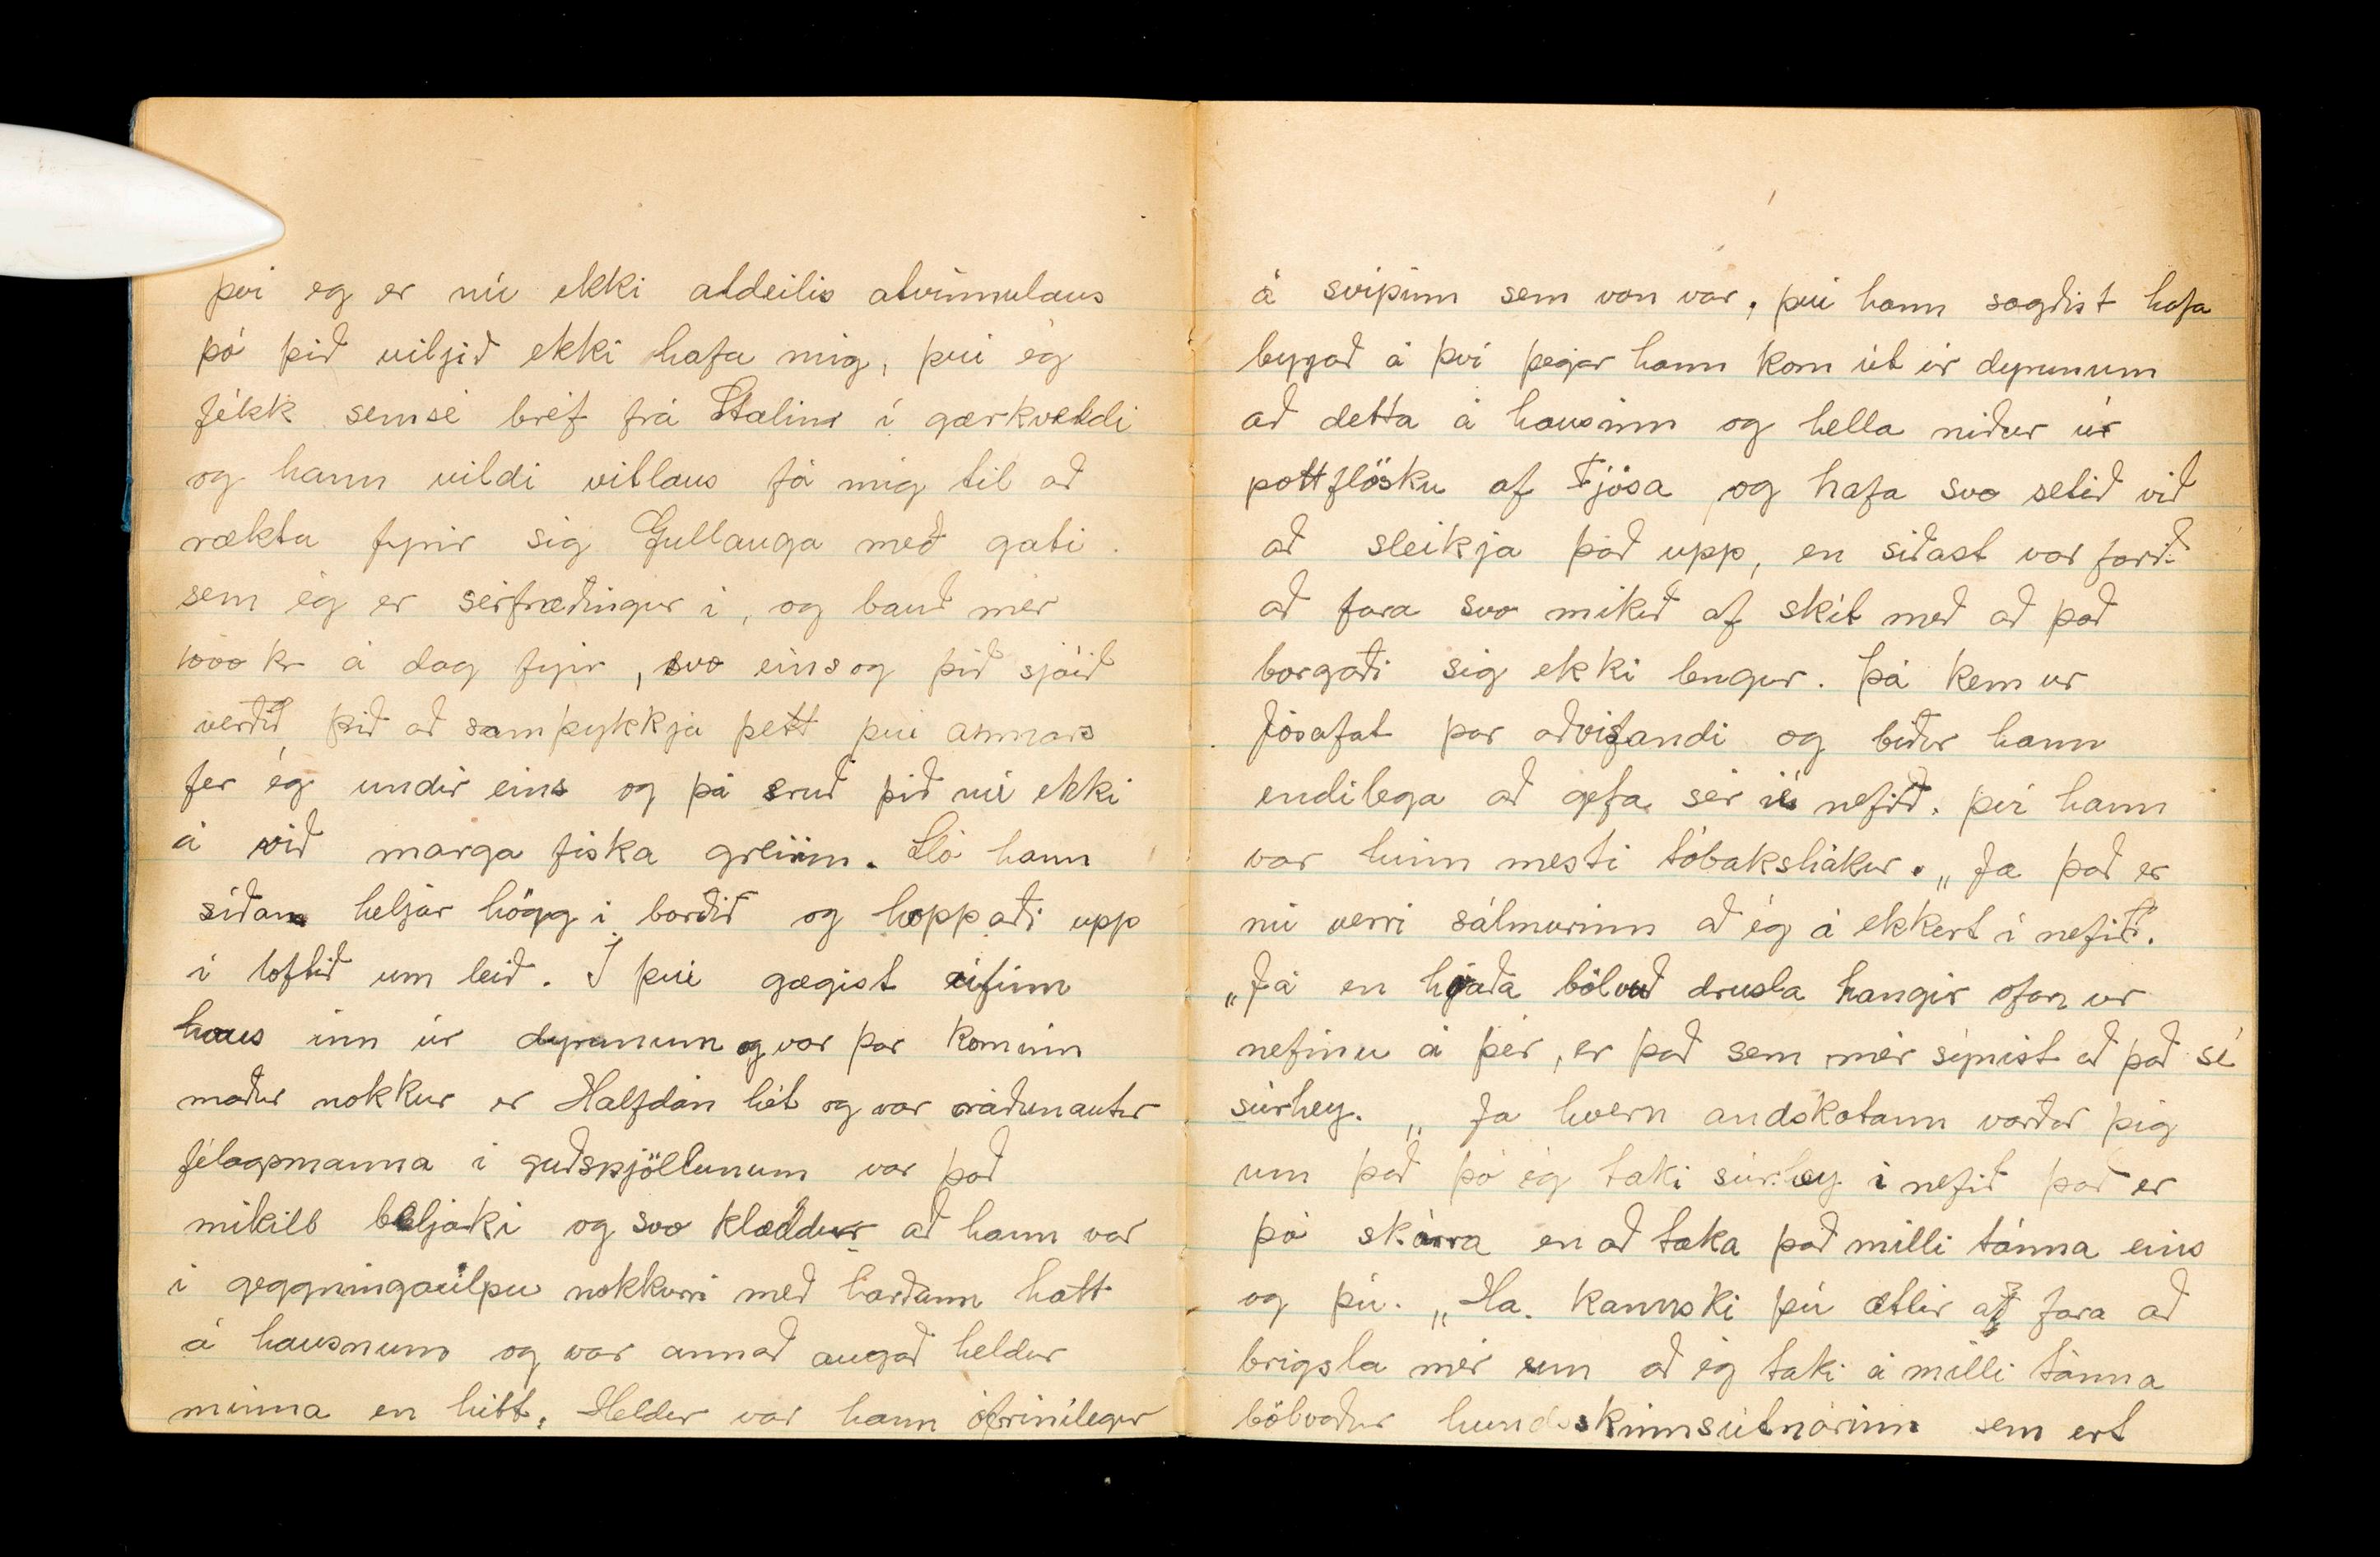 því eg er nú ekki aldeilis atvinnulaus
þó þið viljið ekki hafa mig, því ég
fékk semsé bréf frá Stalins í gærkveldi
og hann vildi vitlaus fá mig til að
rækta fyrir sig Gullauga með gati.
sem ég er sérfræðingur í, og bauð mér
1000 kr á dag fyrir, svo eins og þið sjáið
verðið þið að samþykkja þett því annars
fer ég undir eins og þá eruð þið nú ekki
á við marga fiska greiin. Sló hann
síðan heljar högg í borðið og hoppaði upp
í loftið um leið. Í því gægist úfinn
haus inn úr dyrunum og var þar kominn
maður nokkur er Halfdán hét og var ráðunautur
félagsmanna í guðspjöllunum var það
mikill beljaki og svo klæddur að hann var
í geggningaúlpu nokkurri með barðann hatt
á hausnum og var annað augað heldur
minna en hitt. Heldur var hann ófrínilegur
á svipinn sem von var, því hann sagðist hafa
byrjað á því þegar hann kom út úr dyrunum
að detta á hausinn og hella niður úr
pottflösku af Fjósa og hafa svo setið við
að sleikja það upp, en síðast var farið
að fara svo mikið af skít með að það
borgaði sig ekki lengur. Þá kemur
Jósafat þar aðvifandi og biður hann
endilega að gefa sér í nefið. því hann
var hinn mesti tóbakshákur. „Ja það er
nú verri sálmurinn að ég á ekkert í nefið".
„Já en hvaða bölvuð drusla hangir ofan úr
nefinu á þér, er það sem mér sýnist að það sé
súrhey. „ Ja hvern andskotann varðar þig
um það þó ég taki súrhey í nefið það er
þó skárra en að taka það milli tánna eins
og þú. „Ha. kannski þú ætlir að fara að
brigsla mér um að ég taki á milli tánna
bölvaður hundskinnsútnárinn sem ert